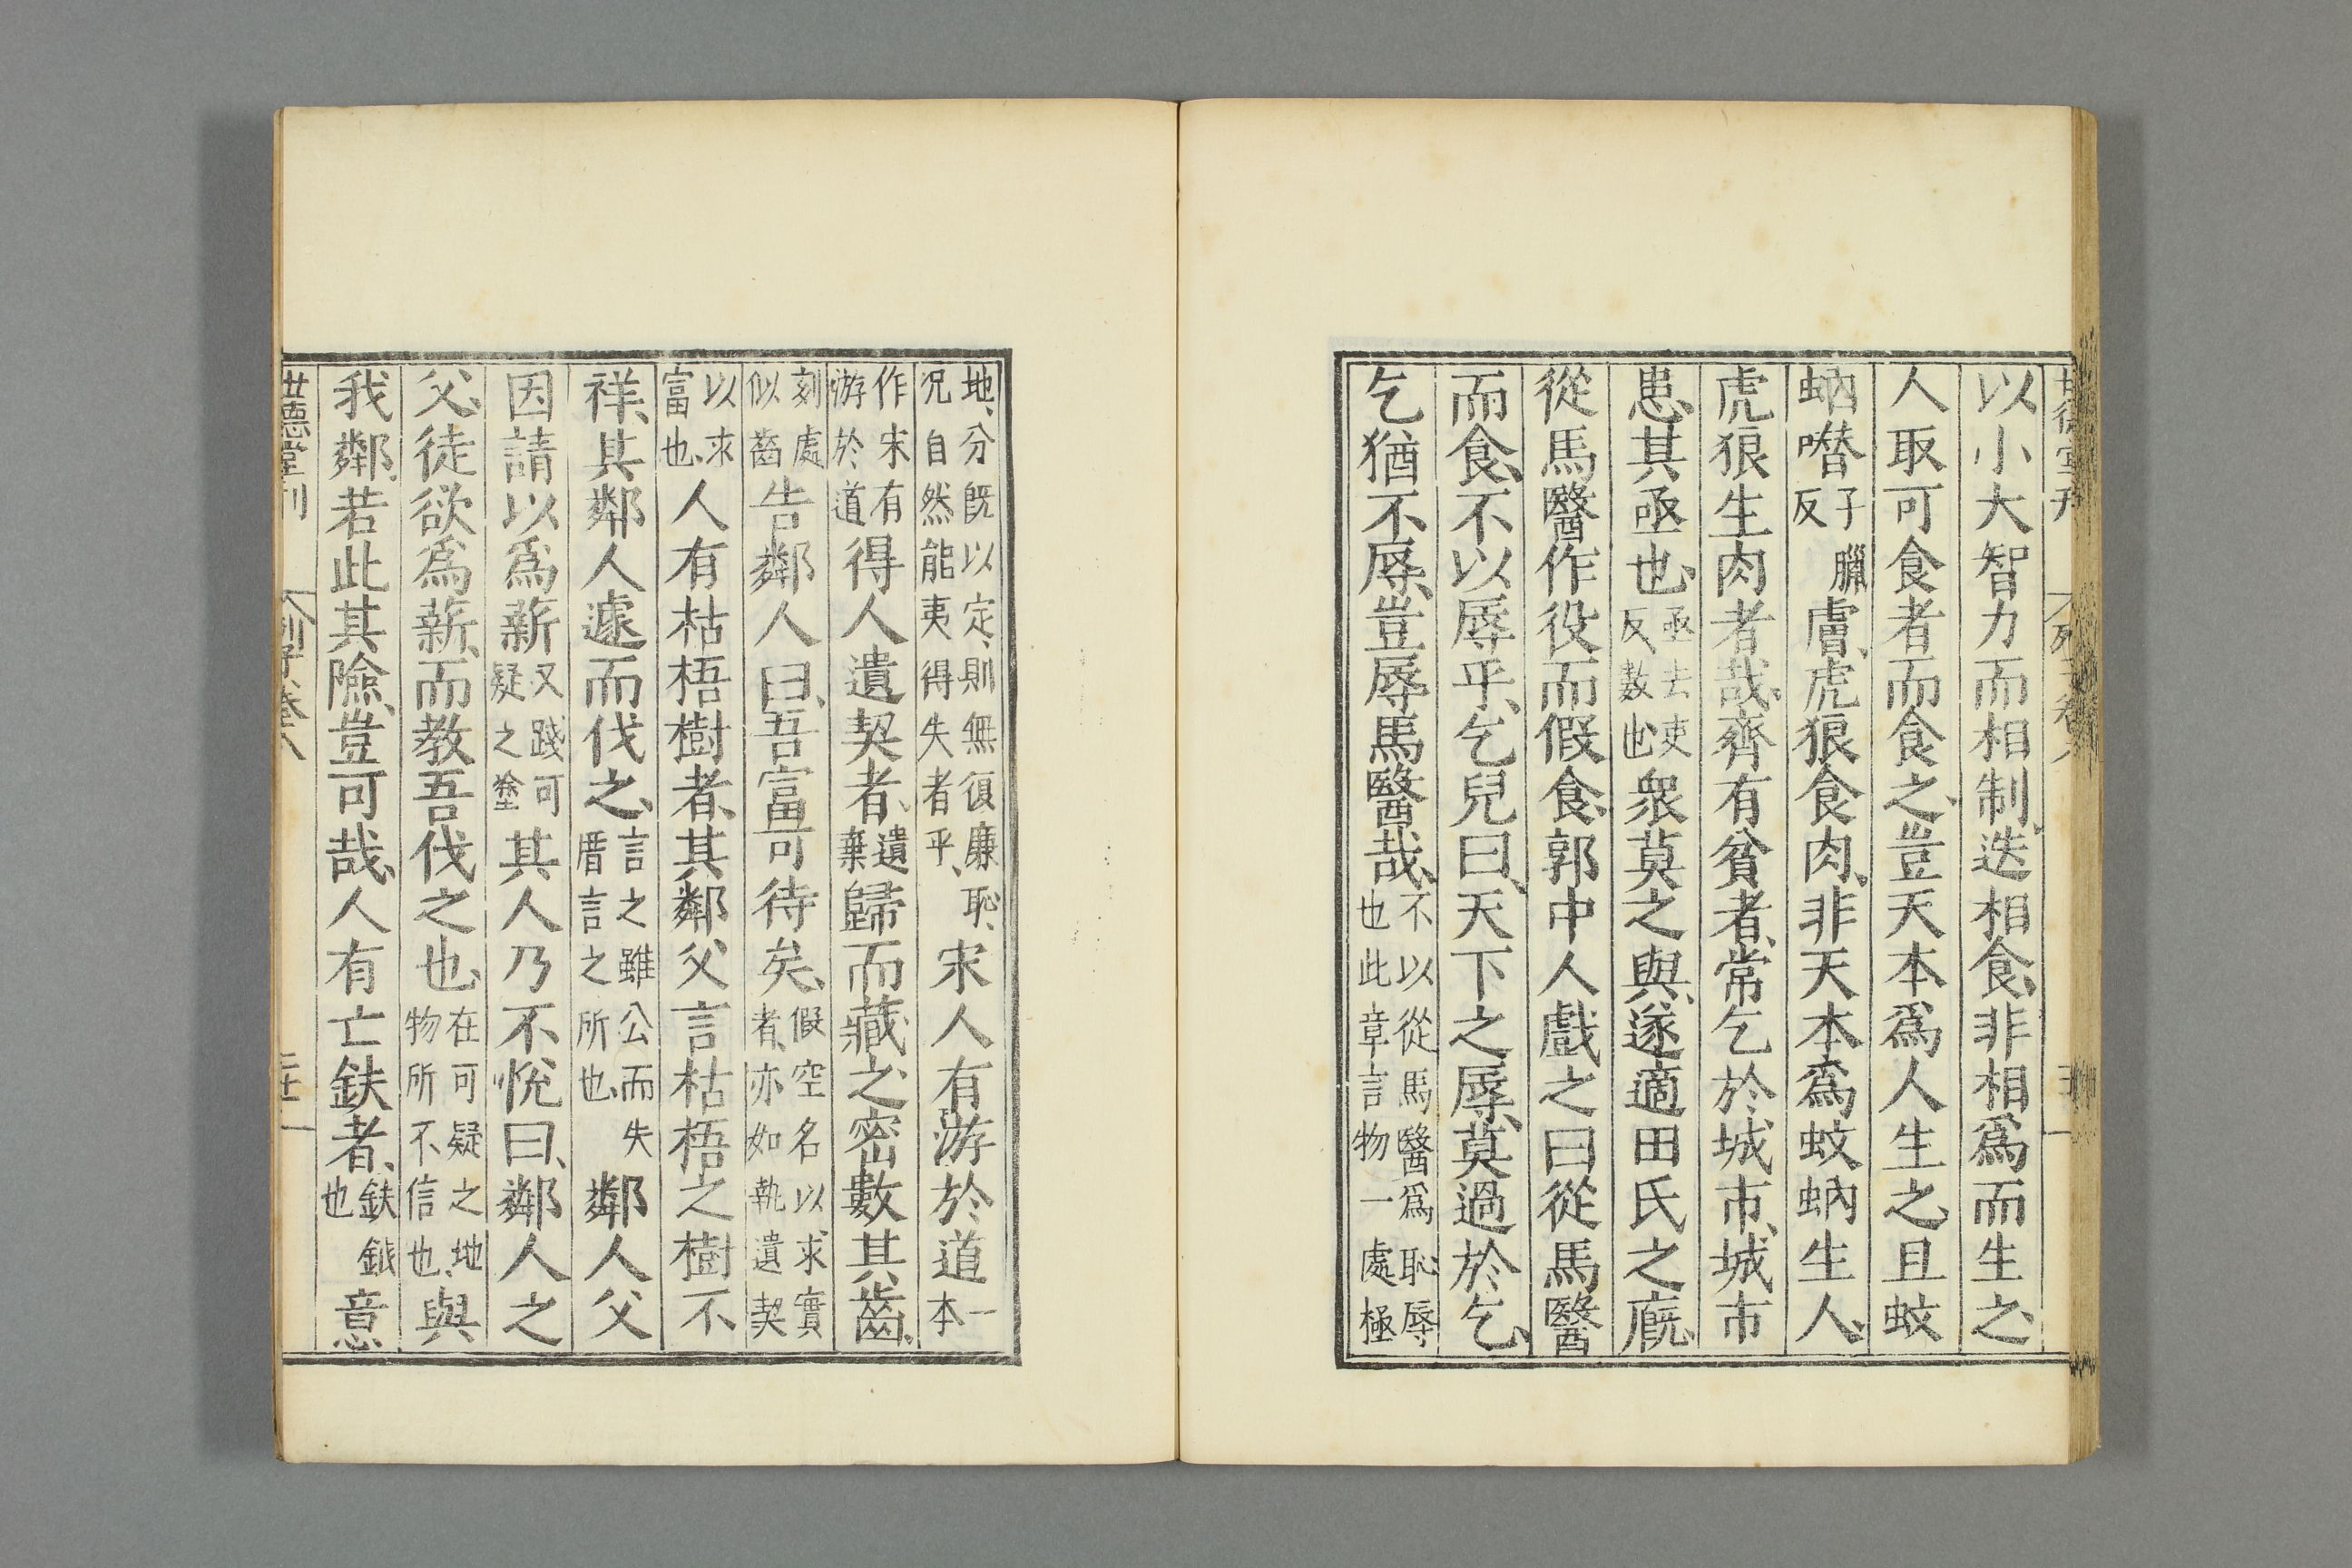 以小大智力而相制、迭相食、非相爲而生之、
人取可食者而食之、豈天本爲人生之、且蚊
蚋噆子臘反膚、虎狼食肉、非天本爲蚊蚋生人、
虎狼生肉者哉、齊有貧者、常乞於城市、城市
患其亟也、亟去吏反、數也、衆莫之與、遂適田氏之廐、
從馬醫作役而假食、郭中人戲之曰從馬醫
而食、不以辱乎、乞兒曰、天下之辱、莫過於乞、
乞猶不辱、豈辱馬醫哉、不以從馬醫爲恥辱、也此章言物一處極
地、分既以定、則無復廉恥、況自然能夷得失者乎、宋人有游於道一本
作宋有游於道得人遺契者、遺棄歸而藏之、密數其齒、
刻處似齒告鄰人曰、吾富可待矣、假空名以求實者、亦如執遺契
以求富也、人有枯梧樹者、其鄰父言枯梧之樹不
祥、其鄰人遽而伐之、言之雖公而失厝言之所也、鄰人父
因請以爲薪又踐可疑之塗其人乃不悅曰、鄰人之
父、徒欲爲薪、而教吾伐之也、在可疑之地、物所不信也、與
我鄰、若此其險、豈可哉、人有亡鈇者、鈇鉞也意
世德堂刊